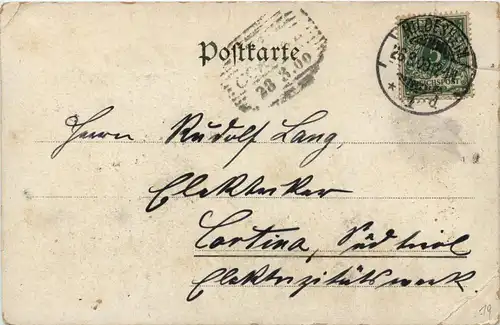 Postkarte
HILDESHEIM
28.3.00
Herrn Rudolf Lang,
Elektriker
Cortina, Südtirol
Elektrizitätswerk.